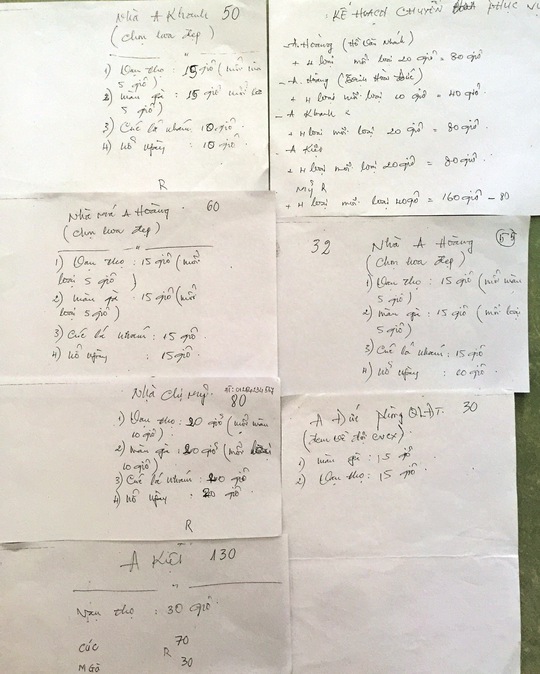 Nhà A Khanh 50
(chọn hoa đẹp)
1) Vạn thọ : 15 giỏ (mỗi màu
5 giỏ)
2) Mào gà : 15 giỏ mỗi loại
5 giỏ)
3) Cúc lá nhám: 10 giỏ
4) Nở ngày : 10 giỏ
R
KẾ HOẠCH CHUYỂN PHỤC VỤ
- A Hoàng (Hồ Văn Nhánh)
+ 4 loại mỗi loại 20 giỏ = 80 giỏ
- A Hoàng
+ 4 loại mỗi loại 10 giỏ = 40 giỏ
- A Khanh
+ 4 loại mỗi loại 20 giỏ = 80 giỏ
- A Kiệt
+ 4 loại mỗi loại 20 giỏ = 80 giỏ
Mỹ R
+ 4 loại mỗi loại 40 giỏ = 160 giỏ - 80
Nhà Má A Hoàng 60
(Chọn hoa đẹp)
1) Vạn thọ : 15 giỏ (mỗi
loại 5 giỏ)
2) Mào gà : 15 giỏ (mỗi
loại 5 giỏ)
3) Cúc lá nhám : 15 giỏ
4) Nở ngày : 15 giỏ
32 Nhà A Hoàng 55
(Chọn hoa đẹp)
1) Vạn thọ : 15 giỏ (mỗi màu
5 giỏ)
2) Mào gà : 15 giỏ (mỗi loại
5 giỏ)
3) Cúc lá nhám : 15 giỏ
4) Nở ngày : 10 giỏ
Nhà Chị Mỹ
80
1) Vạn thọ : 20 giỏ (mỗi màu
10 giỏ)
2) Mào gà : 20 giỏ (mỗi loại
10 giỏ)
3) Cúc lá nhám : 20 giỏ
4) Nở ngày : 20 giỏ
R
A Đức phòng QLĐT 30
(Xem về đổi cvcx)
1) Mào gà : 15 giỏ
2) Vạn thọ : 15 giỏ
A Kiệt 130
Vạn thọ : 30 giỏ
Cúc 70
R
M Gà 30